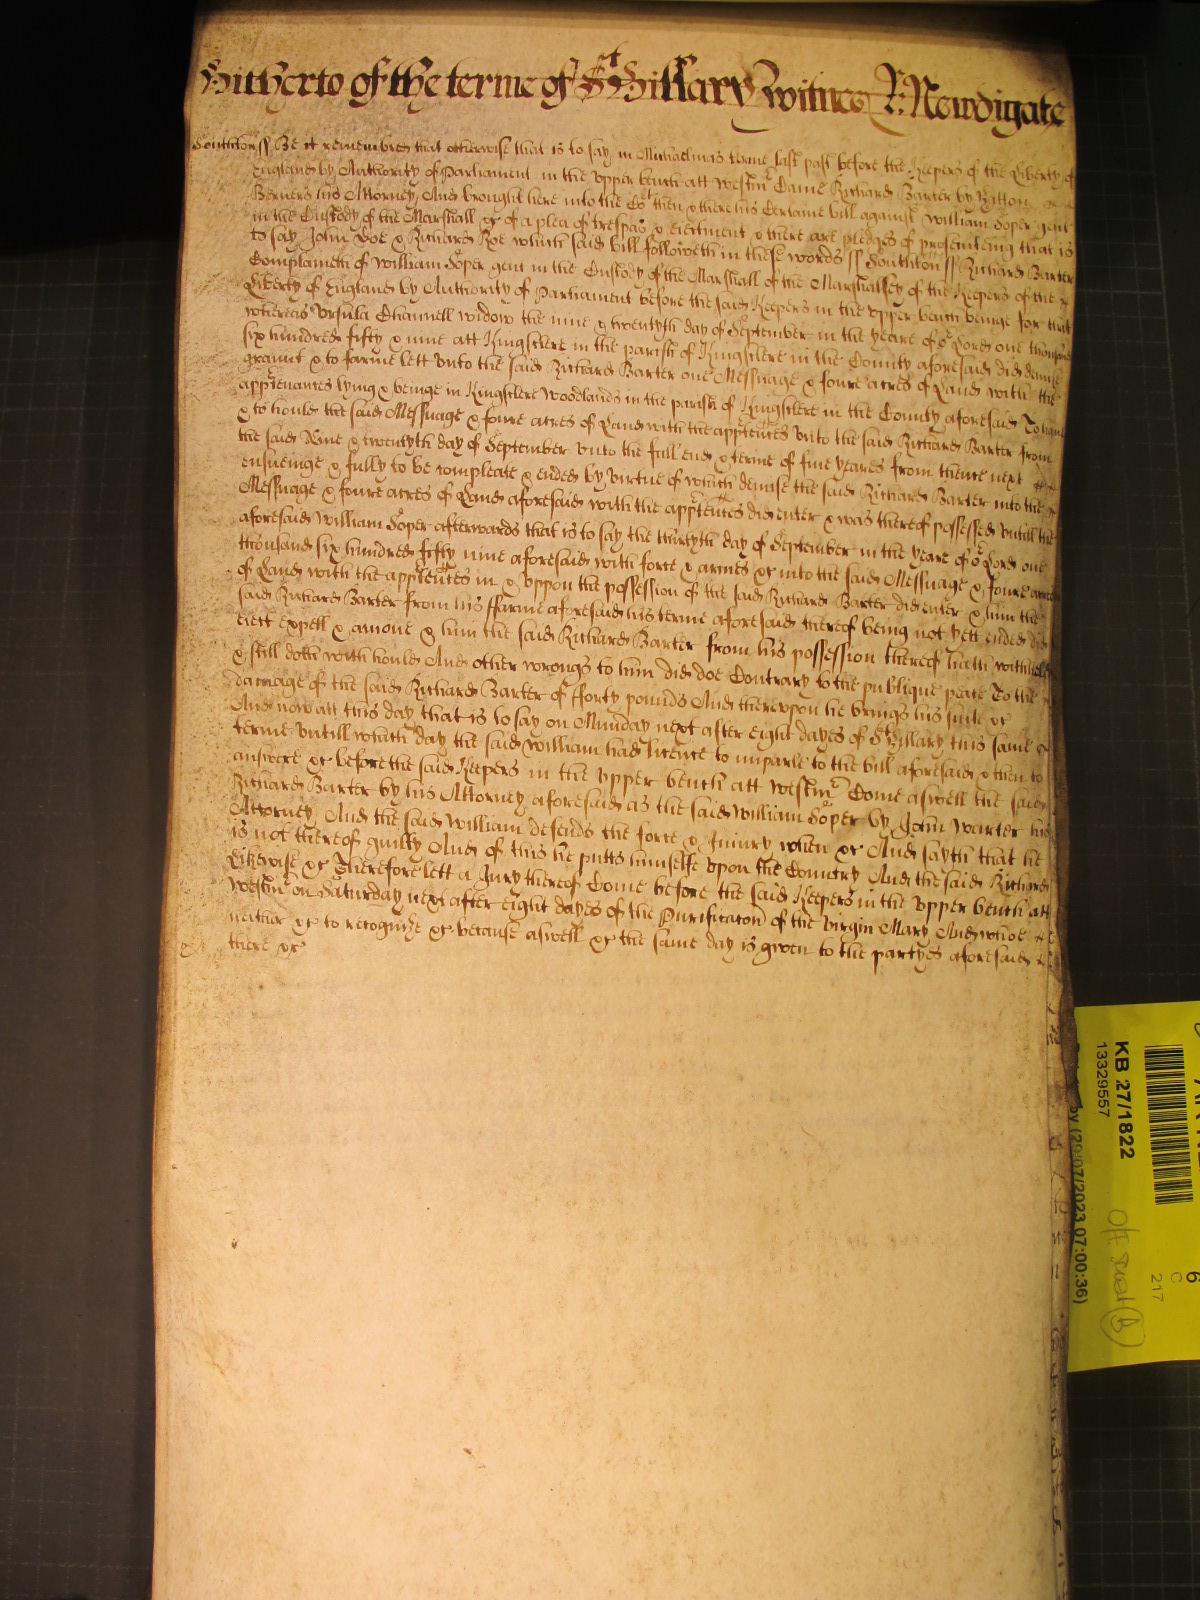 Hitherto of the terme of St Hillary witnes R: Newdigate
Southton ss Be it remembred that otherwise that is to say in Michaelmas terme last past before the Keepers of the Liberty of
England by Authority of Parliament in the upper bench att Westmr Came Richard Barter by
Berners his Attorney And brought here into the Cort then & there his Certaine bill against William Soper gent
in the Custody of the Marshall &c of a plea of trespas & eiectment & there are pledges of prosecuteing that is
to say John Doe & Richard Roe which said bill followeth in these words ss Southton ss Richard Barter
Complaineth of William Soper gent in the Custody of the Marshall of the Marshallsey of the Keepers of the
Liberty of England by Authority of Parliament before the said Keepers in the upper bench beinge for that
whereas Ursula Channell widow the nine & twentyth day of September in the yeare of or Lord one thousand
six hundred fifty & nine att Kingsclere in the parish of Kingsclere in the County aforesaid did demise
graunt & to farme lett unto the said Richard Barter one Messuage & foure acres of Land with the
apprtenances lying & beinge in Kingsclere Woodlands in the parish of Kingsclere in the County aforesaid To have
& to hould the said Messuage & foure acres of Land with the apprtences unto the said Richard Barter from
the said Nine & twentyth day of September unto the full end & terme of five yeares from thence next
ensueinge & fully to be compleate & ended by virtue of which demise the said Richard Barter into the
Messuage & foure acres of Land aforesaid with the apprtences did enter & was thereof possessed untill the
aforesaid William Soper afterwards that is to say the thirtyth day of September in the yeare of or Lord one
thousand six hundred fifty nine aforesaid with force & armes &c into the said Messuage & foure acres
of Land with the apprtences in & uppon the possession of the said Richard Barter did enter & him the
said Richard Barter from his ffarme aforesaid his terme aforesaid thereof being not yett ended did
eiect expell & amove & him the said Richard Barter from his possession thereof hath withheld
& still doth withhould And other wrongs to him did doe Contrary to the publique peace To the
damage of the said Richard Barter of fforty pounds And thereupon he brings his suite &c
And now att this day that is to say on Munday next after eight dayes of St Hillary this same
terme untill which day the said William had licence to imparle to the bill aforesaid & then to
answere &c before the said Keepers in the upper bench att Westmr Come aswell the said
Richard Barter by his Attorney aforesaid as the said William Soper by John Warter his
Attorney And the said William defends the force & Iniury when &c And sayth that he
is not thereof guilty And of this he putts himselfe upon the Country And the said Richard
Likewise &c Therefore lett a Jury thereof Come before the said Keepers in the upper bench att
Westmr on Saturday next after eight dayes of the Purificacon of the virgin Mary And whoe
neither &c to recognize &c because aswell &c the same day is given to the partyes aforesaid
there &c
KB 27/1822
13329557
(29/07/2023 07:00:36)
217
6